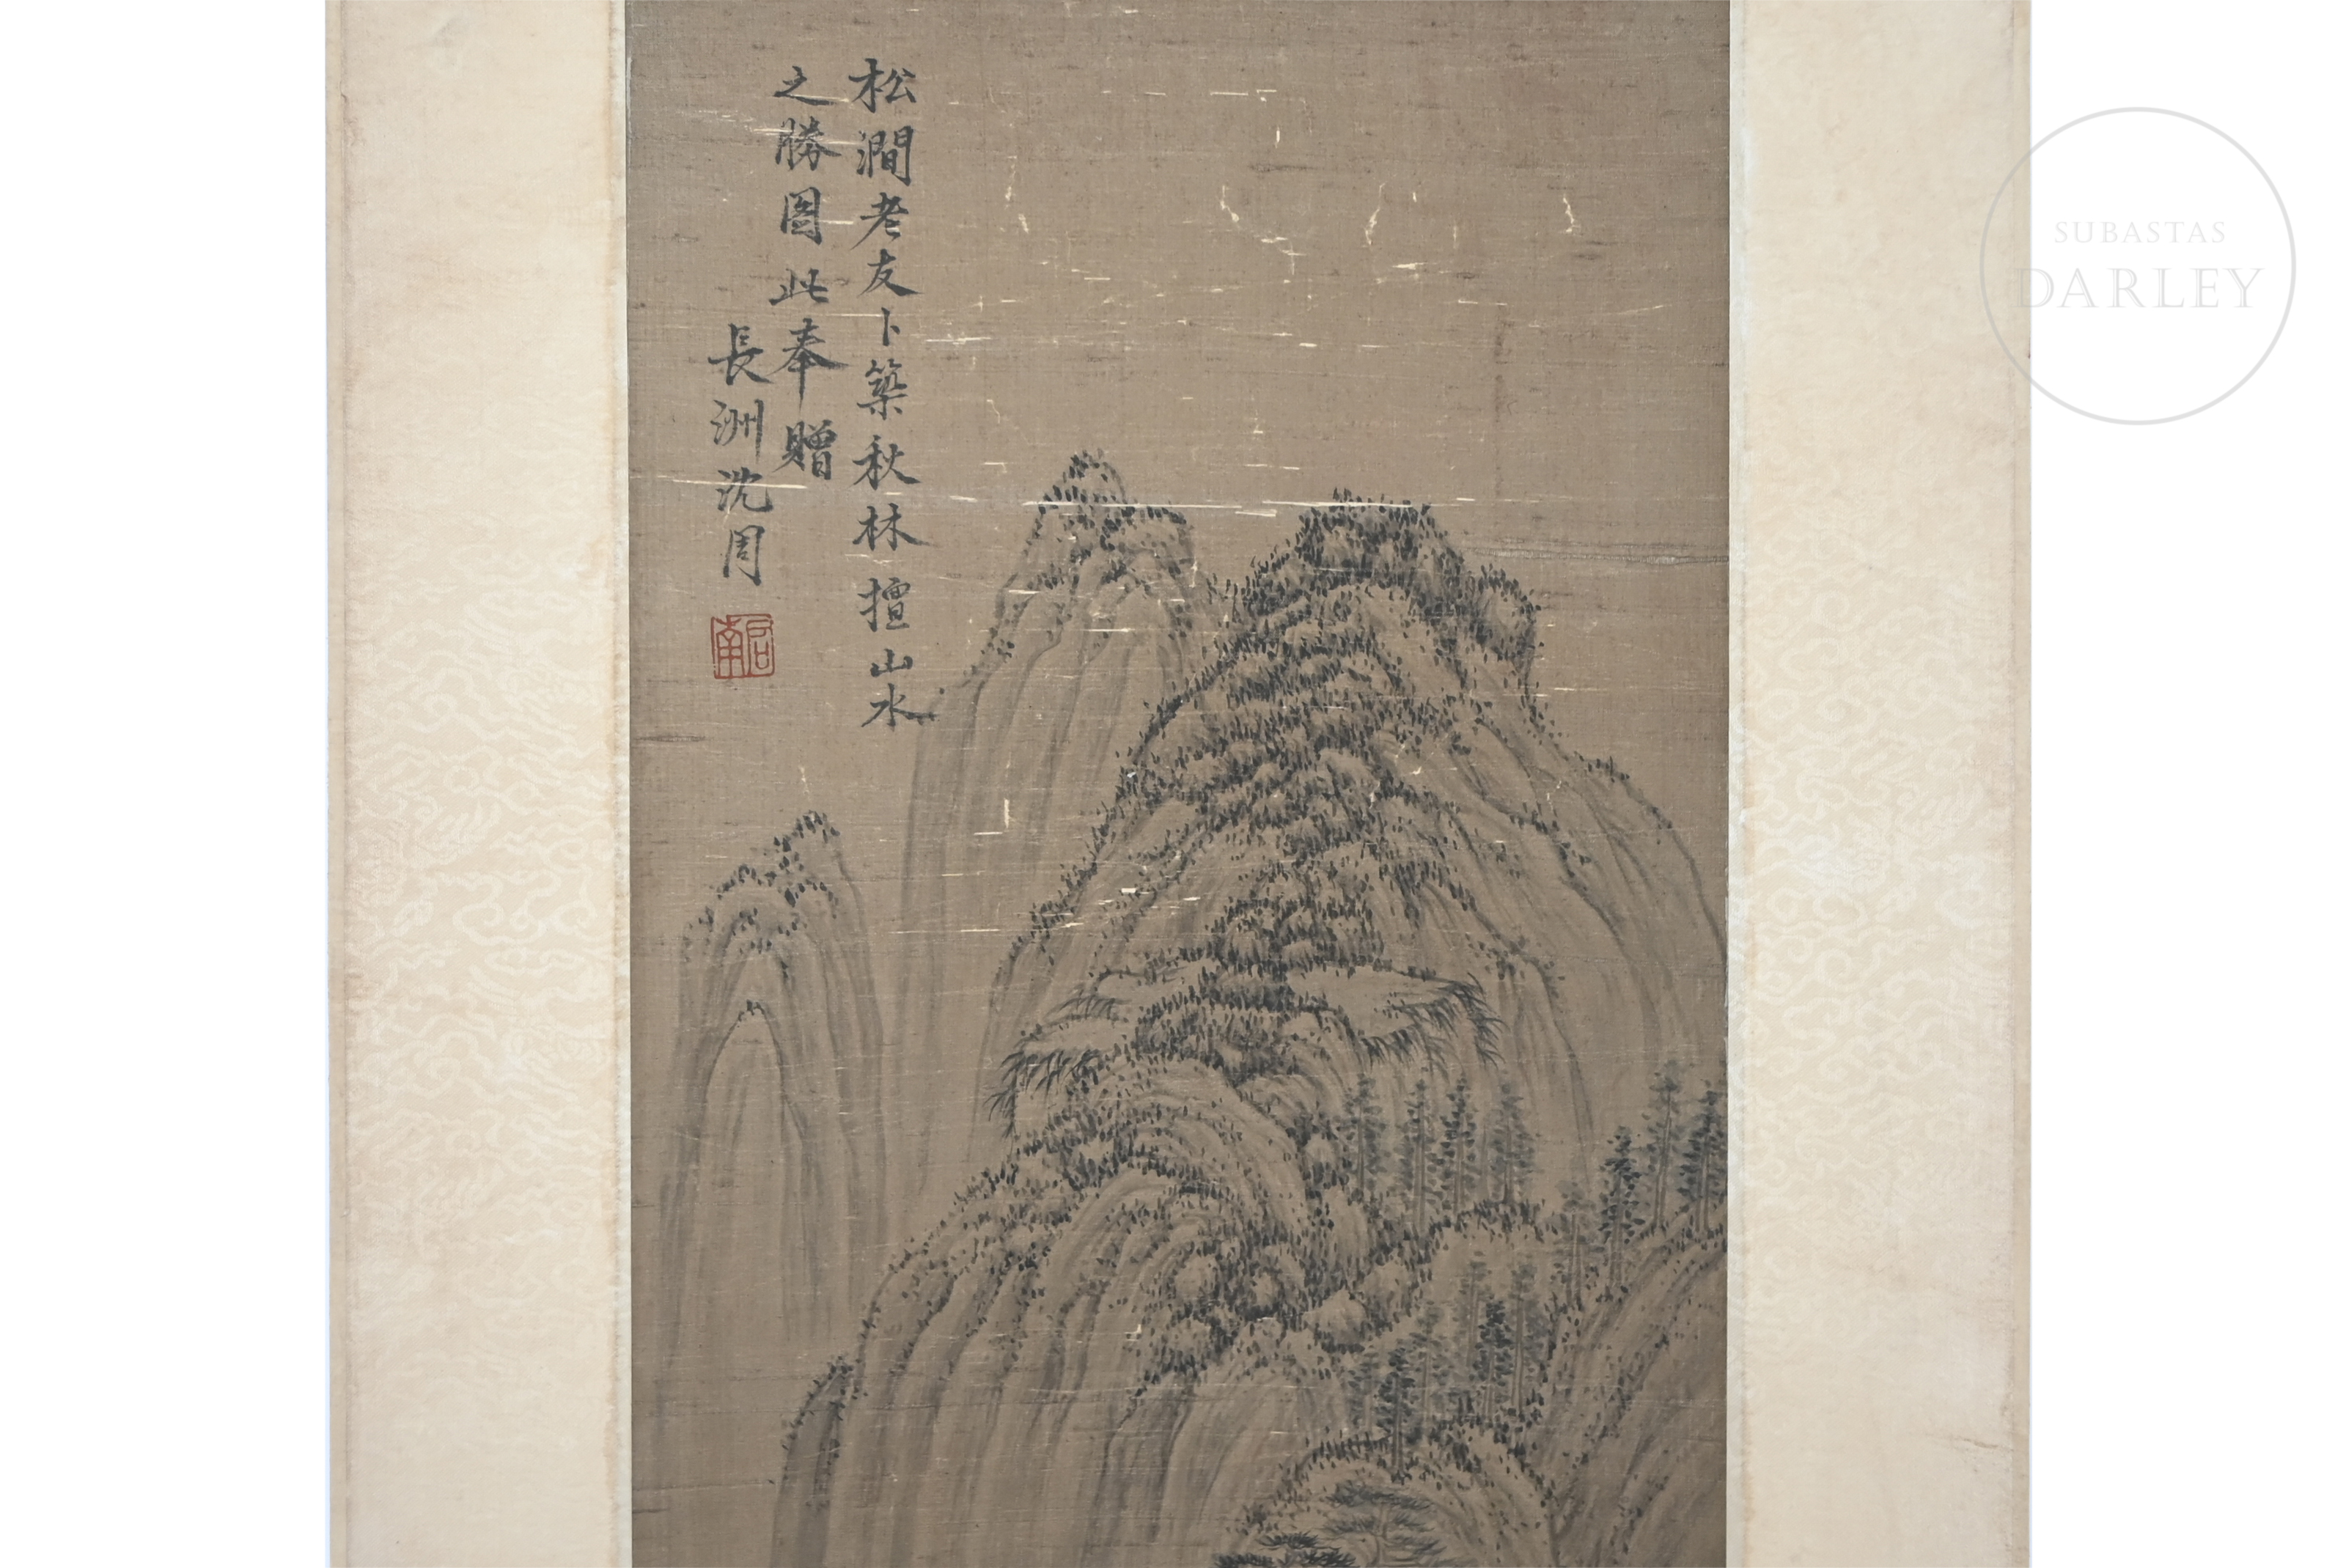 松澗老友卜築秋林擅山水
之勝圖此奉贈
長洲沈周
啟南
SUBASTAS
DARLEY